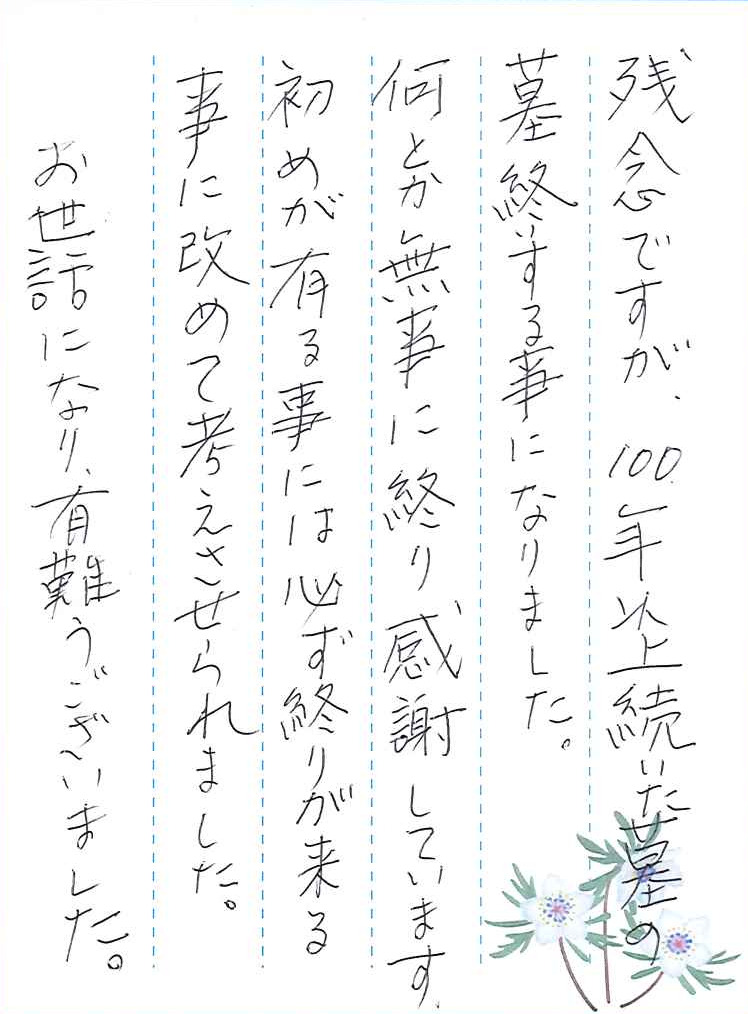 残念ですが、100年以上続いた墓の
墓終いする事になりました。
何とか無事に終り感謝しています。
初めが有る事には必ず終りが来る
事に改めて考えさせられました。
お世話になり、有難うございました。